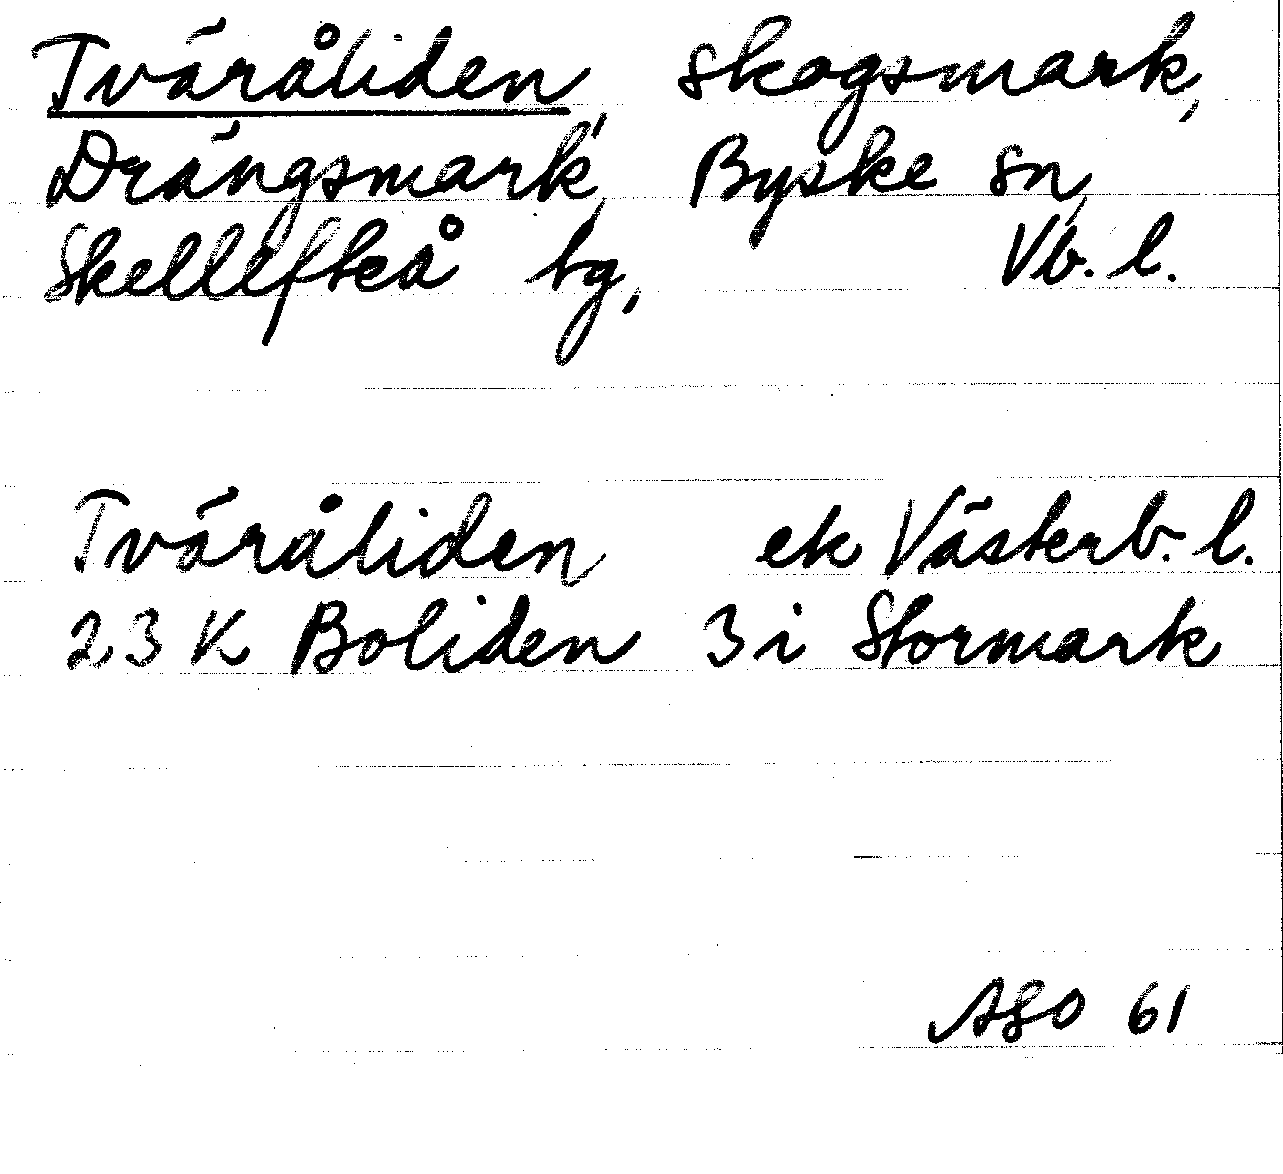 Tväråliden, skogsmark,
Drängsmark, Byske sn,
Skellefteå tg, Vb. l.
Tväråliden ek Västerb. l.
23 K Boliden 3 i Stormark
ASO 61